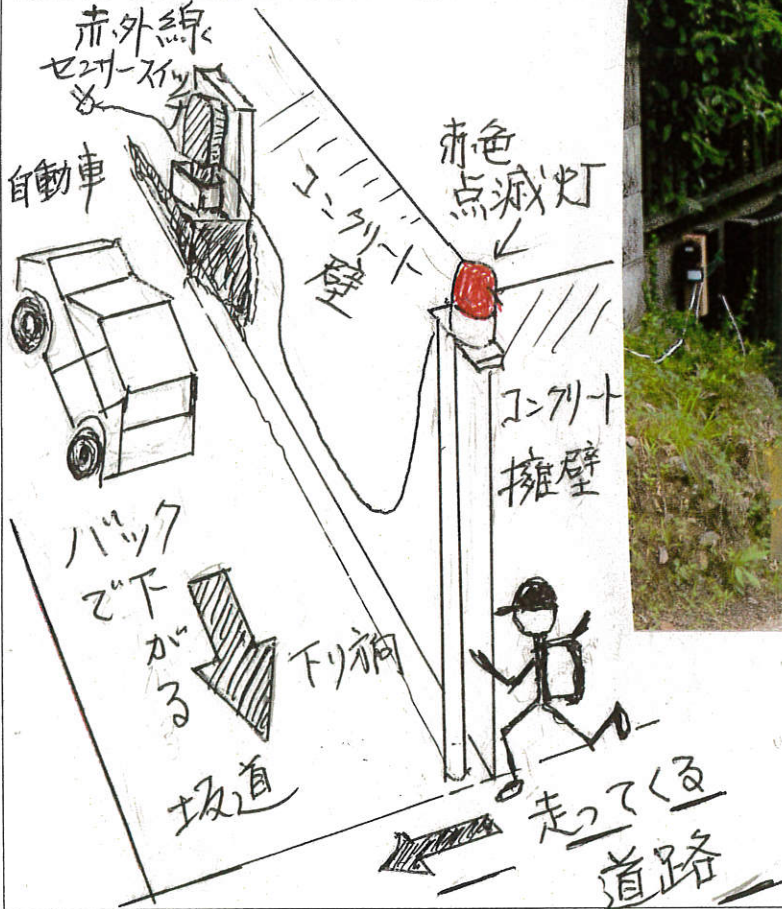 赤外線
センサースイッチ
自動車
コンクリート
壁
赤色
点滅灯
コンクリート
擁壁
バック
で下
がる
下り方向
坂道
走ってくる
道路